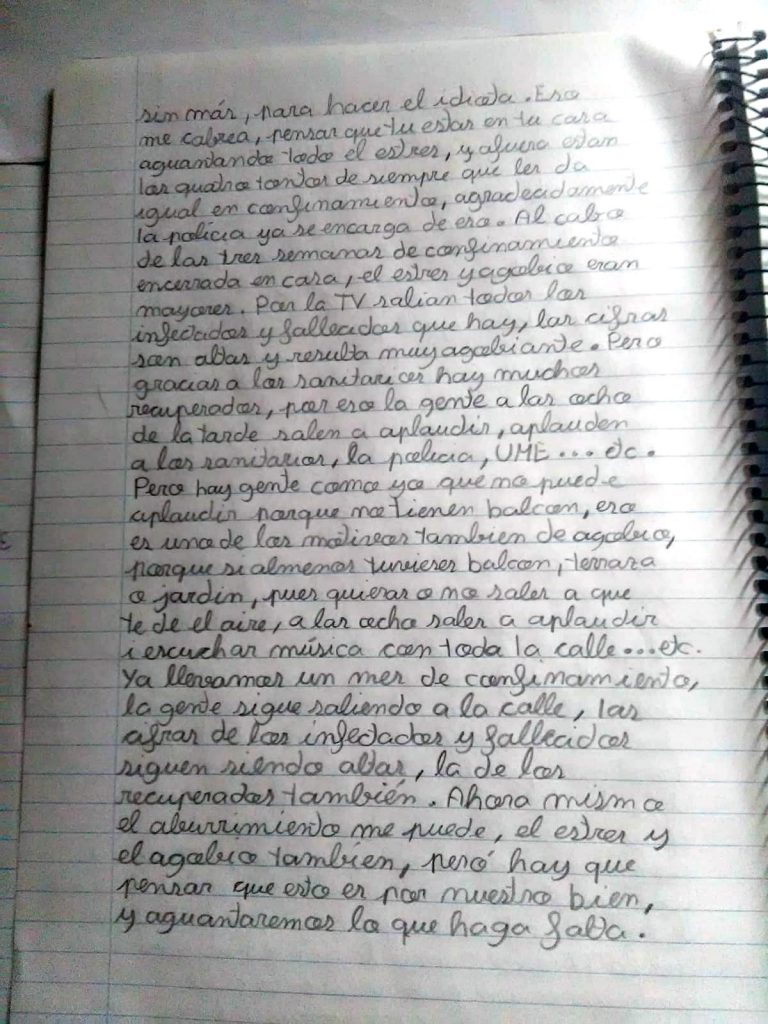 sin más, para hacer el idiota. Eso
me cabrea, pensar que tu estas en tu casa
aguantando todo el estres, y afuera estan
los quatro tontos de siempre que les da
igual en confinamiento, agradecidamente
la policia ya se encarga de eso. Al cabo
de las tres semanas de confinamiento
encerrada en casa, el estres y agobio eran
mayores. Por la TV salian todos los
infectados y fallecidos que hay, las cifras
son altas y resulta muy agobiante. Pero
gracias a los sanitarios hay muchos
recuperados, por eso la gente a las ocho
de la tarde salen a aplaudir, aplauden
a los sanitarios, la policia, UME... etc.
Pero hay gente como yo que no puede
aplaudir porque no tienen balcon, eso
es uno de los motivos tambien de agobio,
porque si almenos tuvieses balcon, terraza
o jardin, pues quieras o no sales a que
te de el aire, a las ocho sales a aplaudir
i escuchar música con toda la calle...etc.
Ya llevamos un mes de confinamiento,
la gente sigue saliendo a la calle, las
cifras de los infectados y fallecidos
siguen siendo altas, la de los
recuperados también. Ahora mismo
el aburrimiento me puede, el estres y
el agobio tambien, peró hay que
pensar que esto es por nuestro bien,
y aguantaremos lo que haga falta.